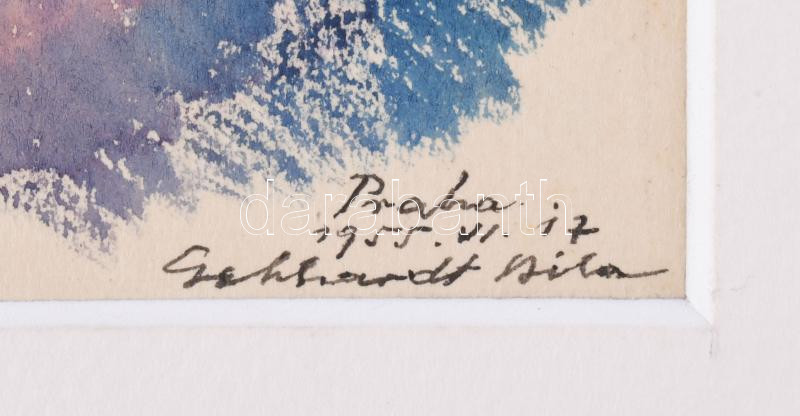 Praha
1955. VI. 17
Gebhardt Béla
darabanth